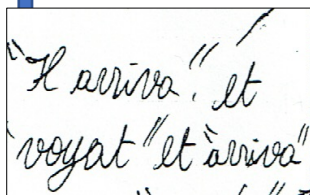 "Il arriva", et
"voyat" et "arriva"